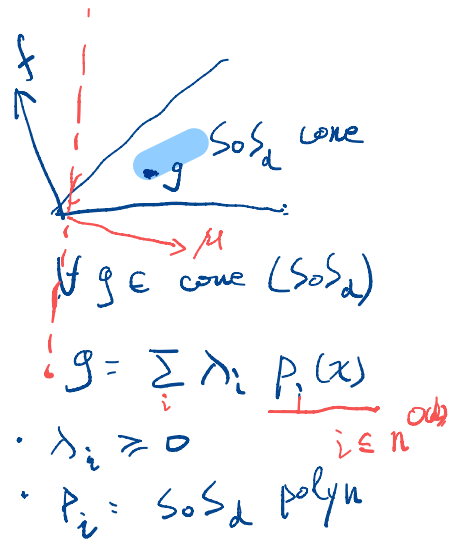 f
SoS_d cone
g
μ
∀ g ∈ cone (SoS_d)
g = Σ_i λ_i p_i(x)
i ∈ n^{O(d)}
· λ_i ≥ 0
· P_i = SoS_d polyn